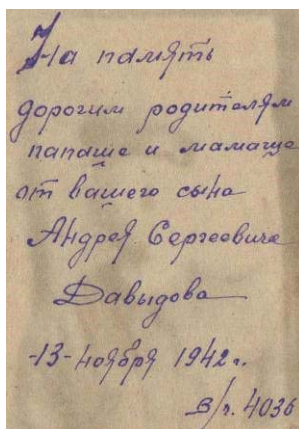 На память
дорогим родителям
папаше и мамаше
от вашего сына
Андрея Сергеевича
Давыдова
-13- ноября 1942 г.
в/ч. 4036